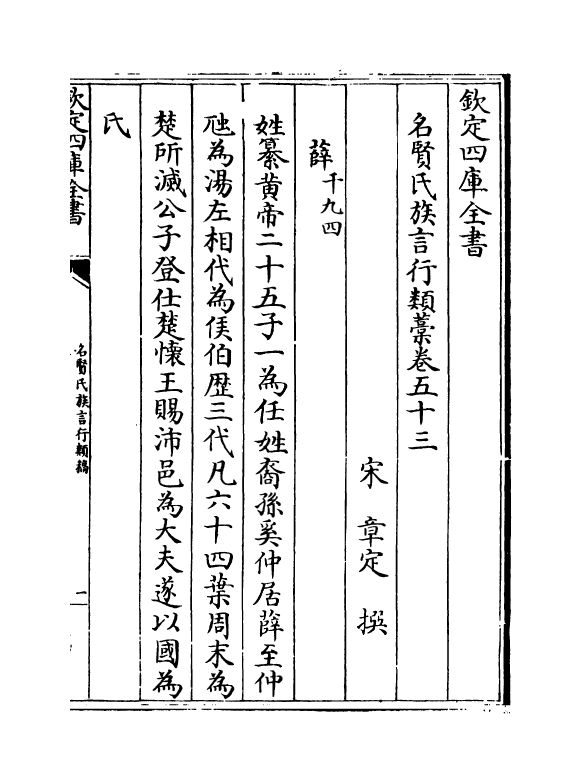 欽定四庫全書
名賢氏族言行類藁卷五十三
宋 章定 撰
薛千九四
姓纂黄帝二十五子一為任姓裔孫奚仲居薛至仲
虺為湯左相代為侯伯歴三代凡六十四葉周末為
楚所滅公子登仕楚懐王賜沛邑為大夫遂以國為
氏
欽定四庫全書
名賢氏族言行類稿
二